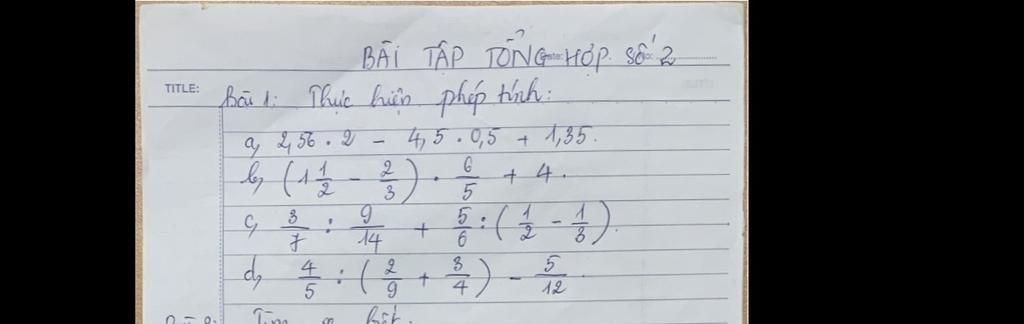 BÀI TẬP TỔNG HỢP SỐ 2
TITLE:
Bài 1: Thực hiện phép tính:
a, 2,56 . 2 - 4,5 . 0,5 + 1,35.
b, (1 1/2 - 2/3) . 6/5 + 4.
c, 3/7 : 9/14 + 5/6 : (1/2 - 1/3).
d, 4/5 : (2/9 + 3/4) - 5/12.